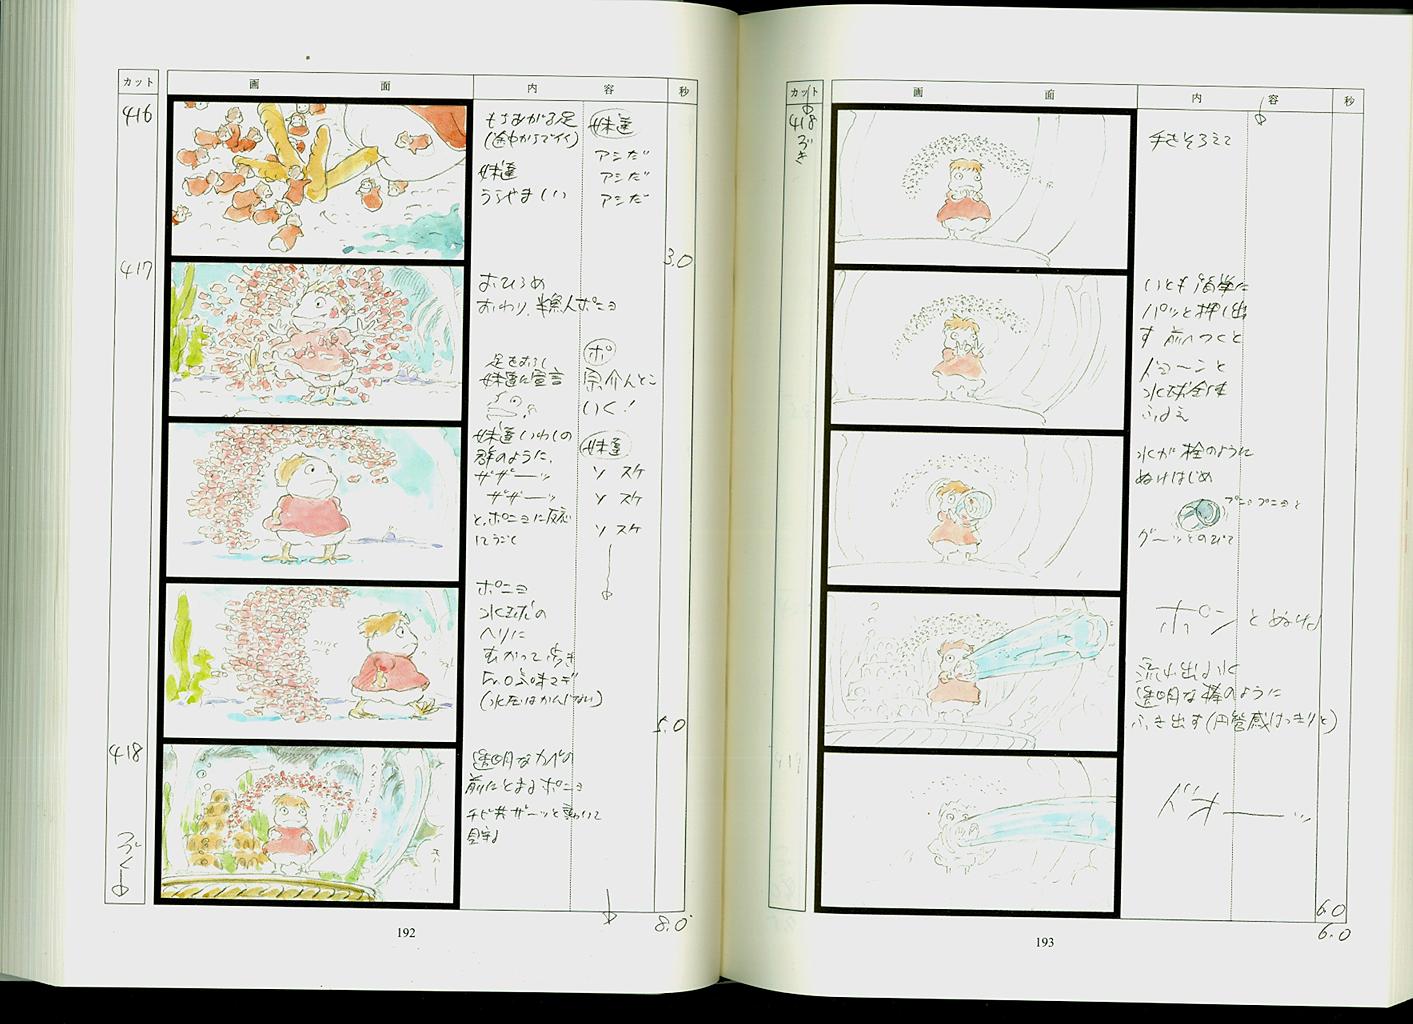 カット
画 面
内 容
秒
416
もちあがる足
(途中からでイイ)
妹達
うらやましい
妹達
アシだ
アシだ
アシだ
3.0
417
おひろめ
おわり、半魚人ポニョ
足をおろし
妹達に宣言
ポ
宗介んとこ
いく!
妹達いわしの
群のように、
ザザーッ
ザザーッ
と、ポニョに反応
にうごく
妹達
ソ スケ
ソ スケ
ソ スケ
ポニョ
水球の
ヘリに
むかって歩き
(水圧はかんじない)
5.0
418
透明なカベの
前にとまるポニョ
チビ共ザーッと
見守る
つづく
8.0
192
カット
画 面
内 容
秒
418
つづき
手をそろえて
いとも簡単に
パッと押し出
す 前へつくと
ドヨーンと
水球全体
ふるえ
水が栓のように
ぬけはじめ
プニョプニョと
グーッとのびて
ポンとぬける
流れ出る水
透明な棒のように
ふき出す(円管感はっきりと)
ドオーーッ
6.0
6.0
193